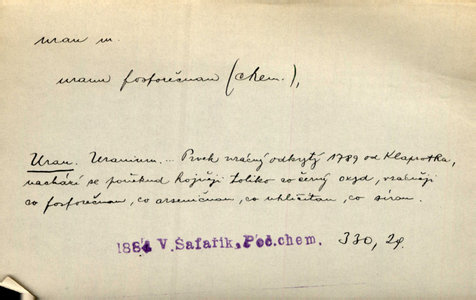 uran m.
uranu fosforečnan (chem.),
Uran. Uranium... Prvek vzácný odkrytý 1789 od Klaprotha,
nachází se poněkud hojněji toliko co černý oxyd, vzácněji
co fosforečnan, co arseničnan, co uhličitan, co síran.
V. Šafařík, Poč. chem. 330,